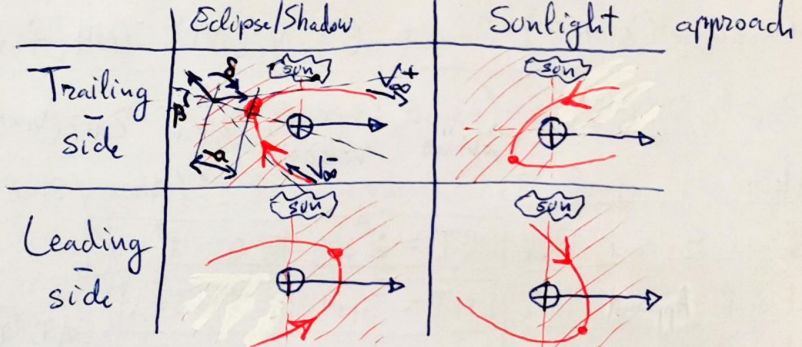 Eclipse/Shadow Sunlight approach
Trailing
-
side
sun
δ
β
α
V∞+
V∞-
sun
Leading
-
side
sun
sun